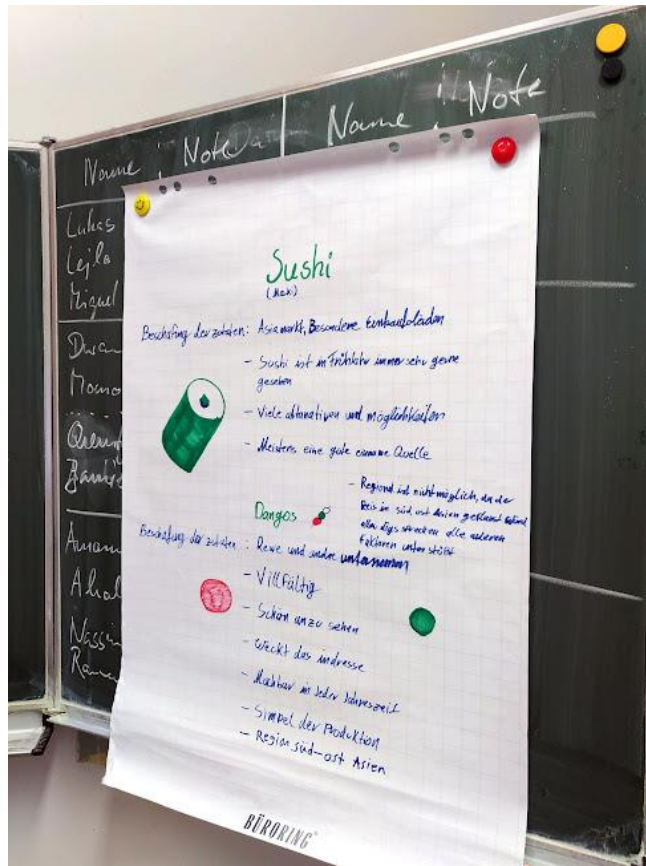 Name Note Name Note
Lukas
Lejla
Miguel
Sushi
(Maki)
Beschafung der zutaten: Asiamarkt, Besondere Einkaufsläden
- Sushi ist im Frühlihr immer sehr gerne
gesehen
- Viele altanativen und möglichkeiten
- Meistens eine gute Quelle
- Regional ist nicht möglich, da der
Reis in süd ost Asien
alle anderen
Faktoren unter stützt
Dangos
Beschafung der zutaten: Rewe und andre unternemen
- Villfältig
- Schön anzu sehen
- Weckt das indresse
- Machbar in Jeder Jahreszeit
- Simpel der Produktion
- Region süd-ost Asien
BÜRORING